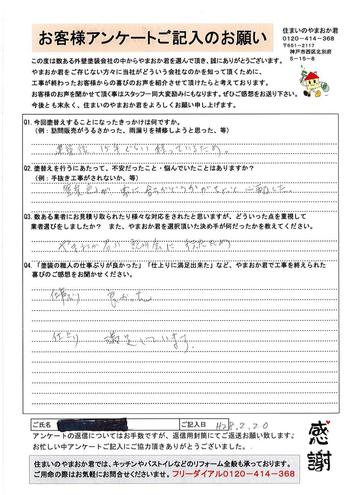 お客様アンケートご記入のお願い
住まいのやまおか君
0120-414-368
〒651-2117
神戸市西区北別府
5-15-8
この度は数ある外壁塗装会社の中からやまおか君を選んで頂き、誠にありがとうございます。
やまおか君をご存じない方々に当社がどういう会社なのかを知って頂くために、
工事が終わったお客様からの喜びの声を紹介させて頂けたらと考えております。
お客様の声をお聞かせ頂く事はスタッフ一同大変励みにもなります。ぜひご感想をお送り下さい。
今後とも末永く、住まいのやまおか君をよろしくお願い申し上げます。
Q1.今回塗替えすることになったきっかけは何ですか。
(例:訪問販売がうるさかった、雨漏りを補修しようと思った、等)
15年ぐらい経っているため。
Q2.塗替えを行うにあたって、不安だったこと・悩んでいたことはありますか?
(例:手抜き工事がされないか、等)
Q3.数ある業者にお見積り取られたり様々な対応をされたと思いますが、どういった点を重視して
業者選びをしましたか? また、やまおか君を選択頂いた決め手が何だったかを教えてください。
やまおか君の
Q4.「塗装の職人の仕事ぶりが良かった」「仕上りに満足出来た」など、やまおか君で工事を終えられた
喜びのご感想をお聞かせください。
仕事ぶり 良かった
仕上り 満足しています。
ご氏名
ご記入日
H28.2.20
アンケートの返信についてはお手数ですが、返信用封筒にてご返送お願い致します。
お忙しい中アンケートご記入にご協力頂きありがとうございました。
感謝
住まいのやまおか君では、キッチンやバストイレなどのリフォーム全般も承っております。
ご用命の際はお気軽にお問合せくださいませ。フリーダイアル0120-414-368